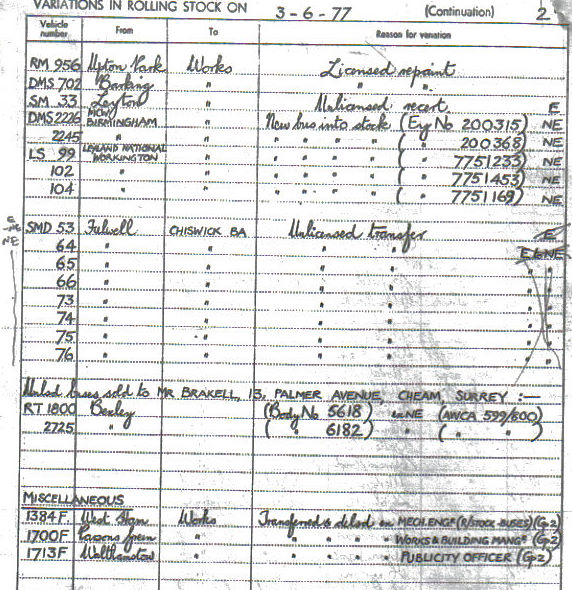 VARIATIONS IN ROLLING STOCK ON 3-6-77 (Continuation) 2
Vehicle number From To Reason for variation
RM 956 Upton Park Works Licensed repaint
DMS 702 Barking " " "
SM 33 Leyton " Unlicensed recert E
DMS 2226 MCW BIRMINGHAM " New bus into stock (Eng No 200315) NE
2245 " " " " " " ( " 200368) NE
LS 99 LEYLAND NATIONAL WORKINGTON " " " " " ( " 7751233) NE
102 " " " " " " ( " 7751453) NE
104 " " " " " " ( " 7751169) NE
SMD 53 Fulwell CHISWICK BA Unlicensed transfer E
E
NE
NE
64 " " " " E & NE
65 " " " " " "
66 " " " " " "
73 " " " " " "
74 " " " " " "
75 " " " " " "
76 " " " " " "
Unlsd buses sold to MR BRAKELL, 13, PALMER AVENUE, CHEAM, SURREY :—
RT 1800 Bexley (Body No 5618) ex NE (AWCA 599/600)
2725 " ( " 6182) " ( " " )
MISCELLANEOUS
1384F West Ham Works Transferred & delsd on MECH. ENGR (R/STOCK-BUSES) (Gp 2)
1700F Parsons Green " " " " WORKS & BUILDING MANGR (Gp 2)
1713F Walthamstow " " " " PUBLICITY OFFICER (Gp 2)